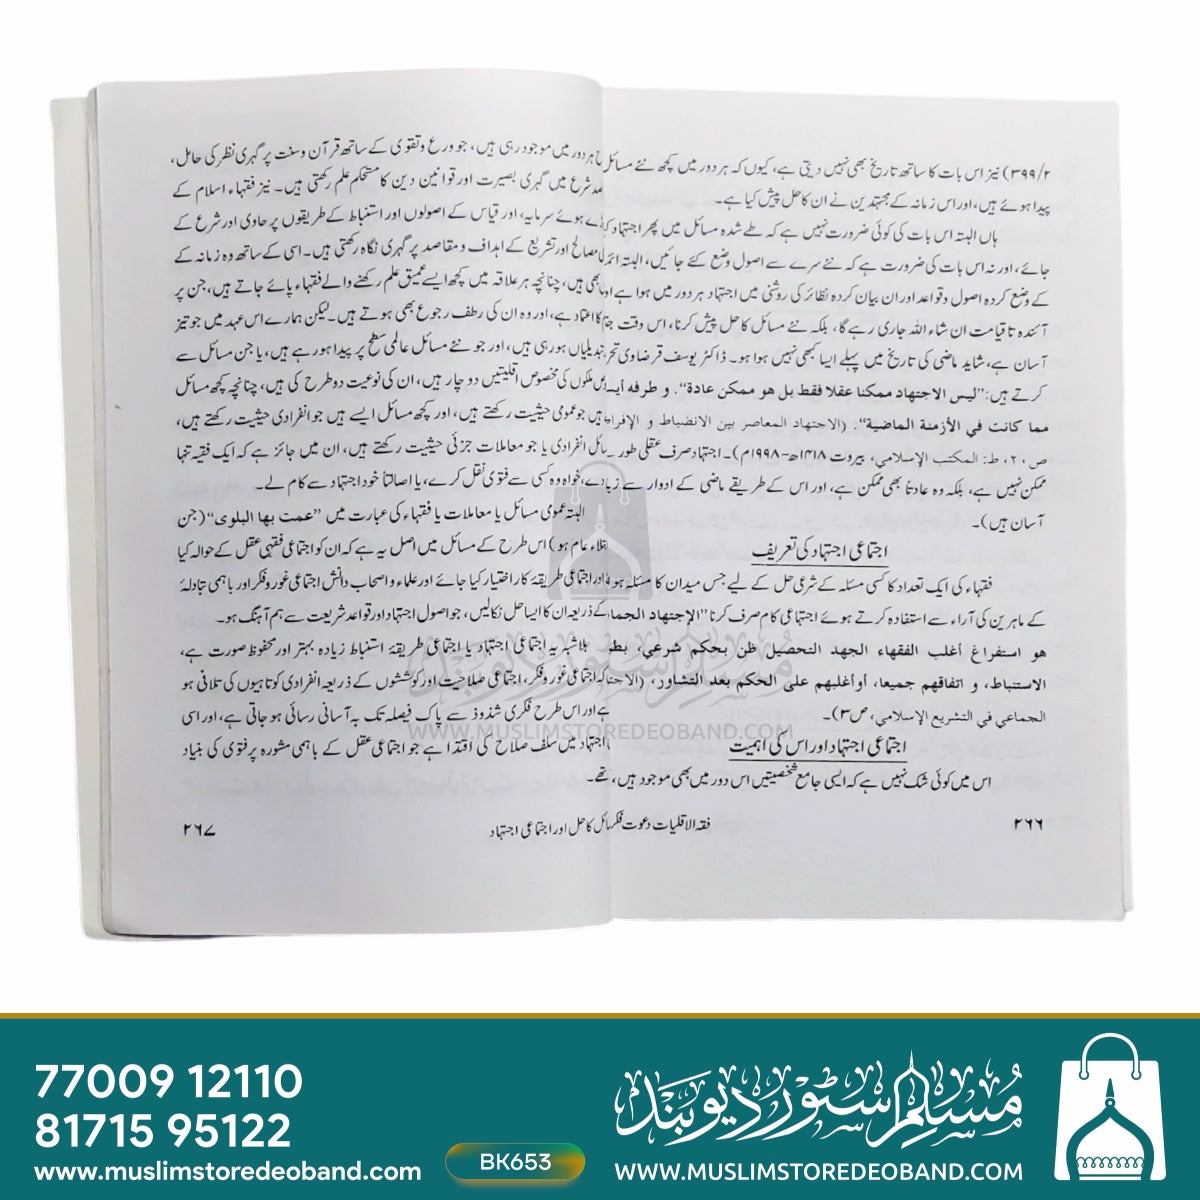 ۳۹۹/۲) نیز اس بات کا ساتھ تاریخ بھی نہیں دیتی ہے، کیوں کہ ہر دور میں کچھ نئے مسائل
پیدا ہوئے ہیں، اور اس زمانہ کے مجتہدین نے ان کا حل پیش کیا ہے۔
ہاں البتہ اس بات کی کوئی ضرورت نہیں ہے کہ طے شدہ مسائل میں پھر اجتہاد
جائے، اور نہ اس بات کی ضرورت ہے کہ نئے سرے سے اصول وضع کئے جائیں، البتہ
کے وضع کردہ اصول و قواعد اور ان بیان کردہ نظائر کی روشنی میں اجتہاد ہر دور میں ہوا ہے
آئندہ تا قیامت ان شاء اللہ جاری رہے گا، بلکہ نئے مسائل کا حل پیش کرنا، اس وقت
آسان ہے، شاید ماضی کی تاریخ میں پہلے ایسا کبھی نہیں ہوا ہو۔ ڈاکٹر یوسف قرضاوی
کرتے ہیں: "ليس الاجتهاد ممكنا عقلا فقط بل هو ممكن عادة". و طرفه
مما كانت في الأزمنة الماضية". (الاجتهاد المعاصر بين الانضباط و
ص ۲۰، ط: المكتب الإسلامي، بيروت ۱۴۱۸ھ-۱۹۹۸م)۔ اجتہاد صرف عقلی طور
ممکن نہیں ہے، بلکہ وہ عادتاً بھی ممکن ہے، اور اس کے طریقے ماضی کے ادوار سے
آسان ہیں)۔
اجتماعی اجتہاد کی تعریف
فقہاء کی ایک تعداد کا کسی مسئلہ کے شرعی حل کے لیے جس میدان کا مسئلہ ہو
کے ماہرین کی آراء سے استفادہ کرتے ہوئے اجتماعی کام صرف کرنا "الإجتهاد
هو استفراغ أغلب الفقهاء الجهد التحصيل ظن بحكم شرعي،
الاستنباط، و اتفاقهم جميعا، أو أغلبهم على الحكم بعد التشاور،
الجماعي في التشريع الإسلامي، ص۳)۔
اجتماعی اجتہاد اور اس کی اہمیت
اس میں کوئی شک نہیں ہے کہ ایسی جامع شخصیتیں اس دور میں بھی موجود ہیں،
۲۶۶
فقہ الاقلیات دعوت
ہر دور میں موجود رہی ہیں، جو ورع و تقوی کے ساتھ قرآن و سنت پر گہری نظر کی حامل،
شرع میں گہری بصیرت اور قوانین دین کا مستحکم علم رکھتی ہیں۔ نیز فقہاء اسلام کے
ہوئے سرمایہ، اور قیاس کے اصولوں اور استنباط کے طریقوں پر حاوی اور شرع کے
مصالح اور تشریع کے اہداف و مقاصد پر گہری نگاہ رکھتی ہیں۔ اسی کے ساتھ وہ زمانہ کے
بھی ہیں، چنانچہ ہر علاقہ میں کچھ ایسے عمیق علم رکھنے والے فقہاء پائے جاتے ہیں، جن پر
کا اعتماد ہے، اور وہ ان کی رطف رجوع بھی ہوتے ہیں۔ لیکن ہمارے اس عہد میں جو تیز
تبدیلیاں ہو رہی ہیں، اور جو نئے مسائل عالمی سطح پر پیدا ہو رہے ہیں، یا جن مسائل سے
ملکوں کی مخصوص اقلیتیں دو چار ہیں، ان کی نوعیت دو طرح کی ہیں، چنانچہ کچھ مسائل
ہیں جو عمومی حیثیت رکھتے ہیں، اور کچھ مسائل ایسے ہیں جو انفرادی حیثیت رکھتے ہیں،
انفرادی یا جو معاملات جزئی حیثیت رکھتے ہیں، ان میں جائز ہے کہ ایک فقیہ تنہا
خواہ وہ کسی سے فتوی نقل کرے، یا اصالتاً خود اجتہاد سے کام لے۔
البتہ عمومی مسائل یا معاملات یا فقہاء کی عبارت میں "عمت بها البلوى" (جن
عام ہو) اس طرح کے مسائل میں اصل یہ ہے کہ ان کو اجتماعی فقہی عقل کے حوالہ کیا
اور اجتماعی طریقۂ کار اختیار کیا جائے اور علماء و اصحاب دانش اجتماعی غور و فکر اور باہمی تبادلۂ
کے ذریعہ ان کا ایسا حل نکالیں، جو اصول اجتہاد اور قواعد شریعت سے ہم آہنگ ہو۔
بلا شبہ یہ اجتماعی اجتہاد یا اجتماعی طریقۂ استنباط زیادہ بہتر اور محفوظ صورت ہے،
اجتماعی غور و فکر، اجتماعی صلاحیت اور کوششوں کے ذریعہ انفرادی کوتاہیوں کی تلافی ہو
ہے اور اس طرح فکری شذوذ سے پاک فیصلہ تک بہ آسانی رسائی ہو جاتی ہے، اور اسی
اجتہاد میں سلف صلاح کی اقتدا ہے جو اجتماعی عقل کے باہمی مشورہ پر فتوی کی بنیاد
تھے۔
مسائل کا حل اور اجتماعی اجتہاد
۲۶۷
مسلم سٹور دیوبند
WWW.MUSLIMSTOREDEOBAND.COM
77009 12110
81715 95122
www.muslimstoredeoband.com
BK653
مسلم سٹور دیوبند
WWW.MUSLIMSTOREDEOBAND.COM